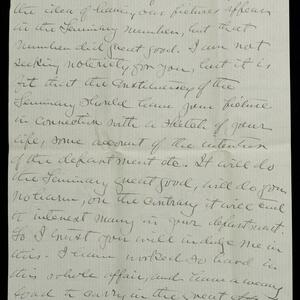 the idea of having our pictures appear
in the Seminary number, but that
number did great good. I am not
seeking notoriety for you, but it is
fit that the constituency of the
Seminary should have your picture
in connection with a sketch of your
life, some account of the intention
of the department etc. It will do
the Seminary great good, will do you
no harm, on the contrary it will tend
to interest many in your department.
So I trust you will indulge me in
this. I have worked so hard in
this whole affair, and have a weary
load to carry in the great